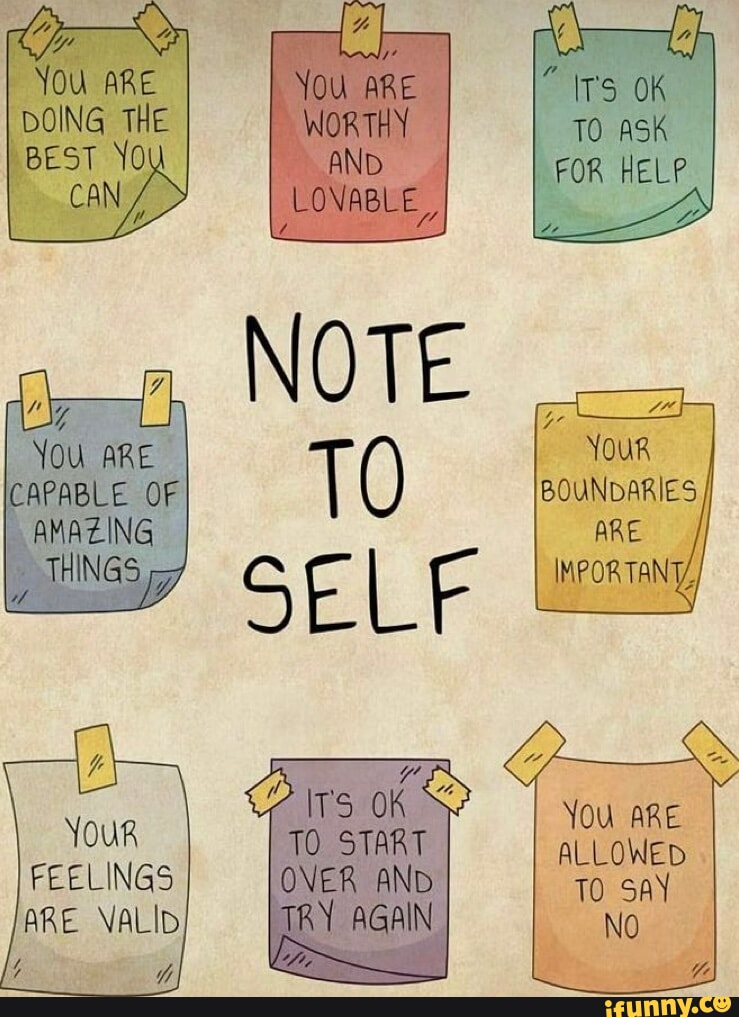 YOU ARE
DOING THE
BEST YOU
CAN
YOU ARE
WORTHY
AND
LOVABLE
IT'S OK
TO ASK
FOR HELP
NOTE
TO
SELF
YOU ARE
CAPABLE OF
AMAZING
THINGS
YOUR
BOUNDARIES
ARE
IMPORTANT
YOUR
FEELINGS
ARE VALID
IT'S OK
TO START
OVER AND
TRY AGAIN
YOU ARE
ALLOWED
TO SAY
NO
ifunny.co